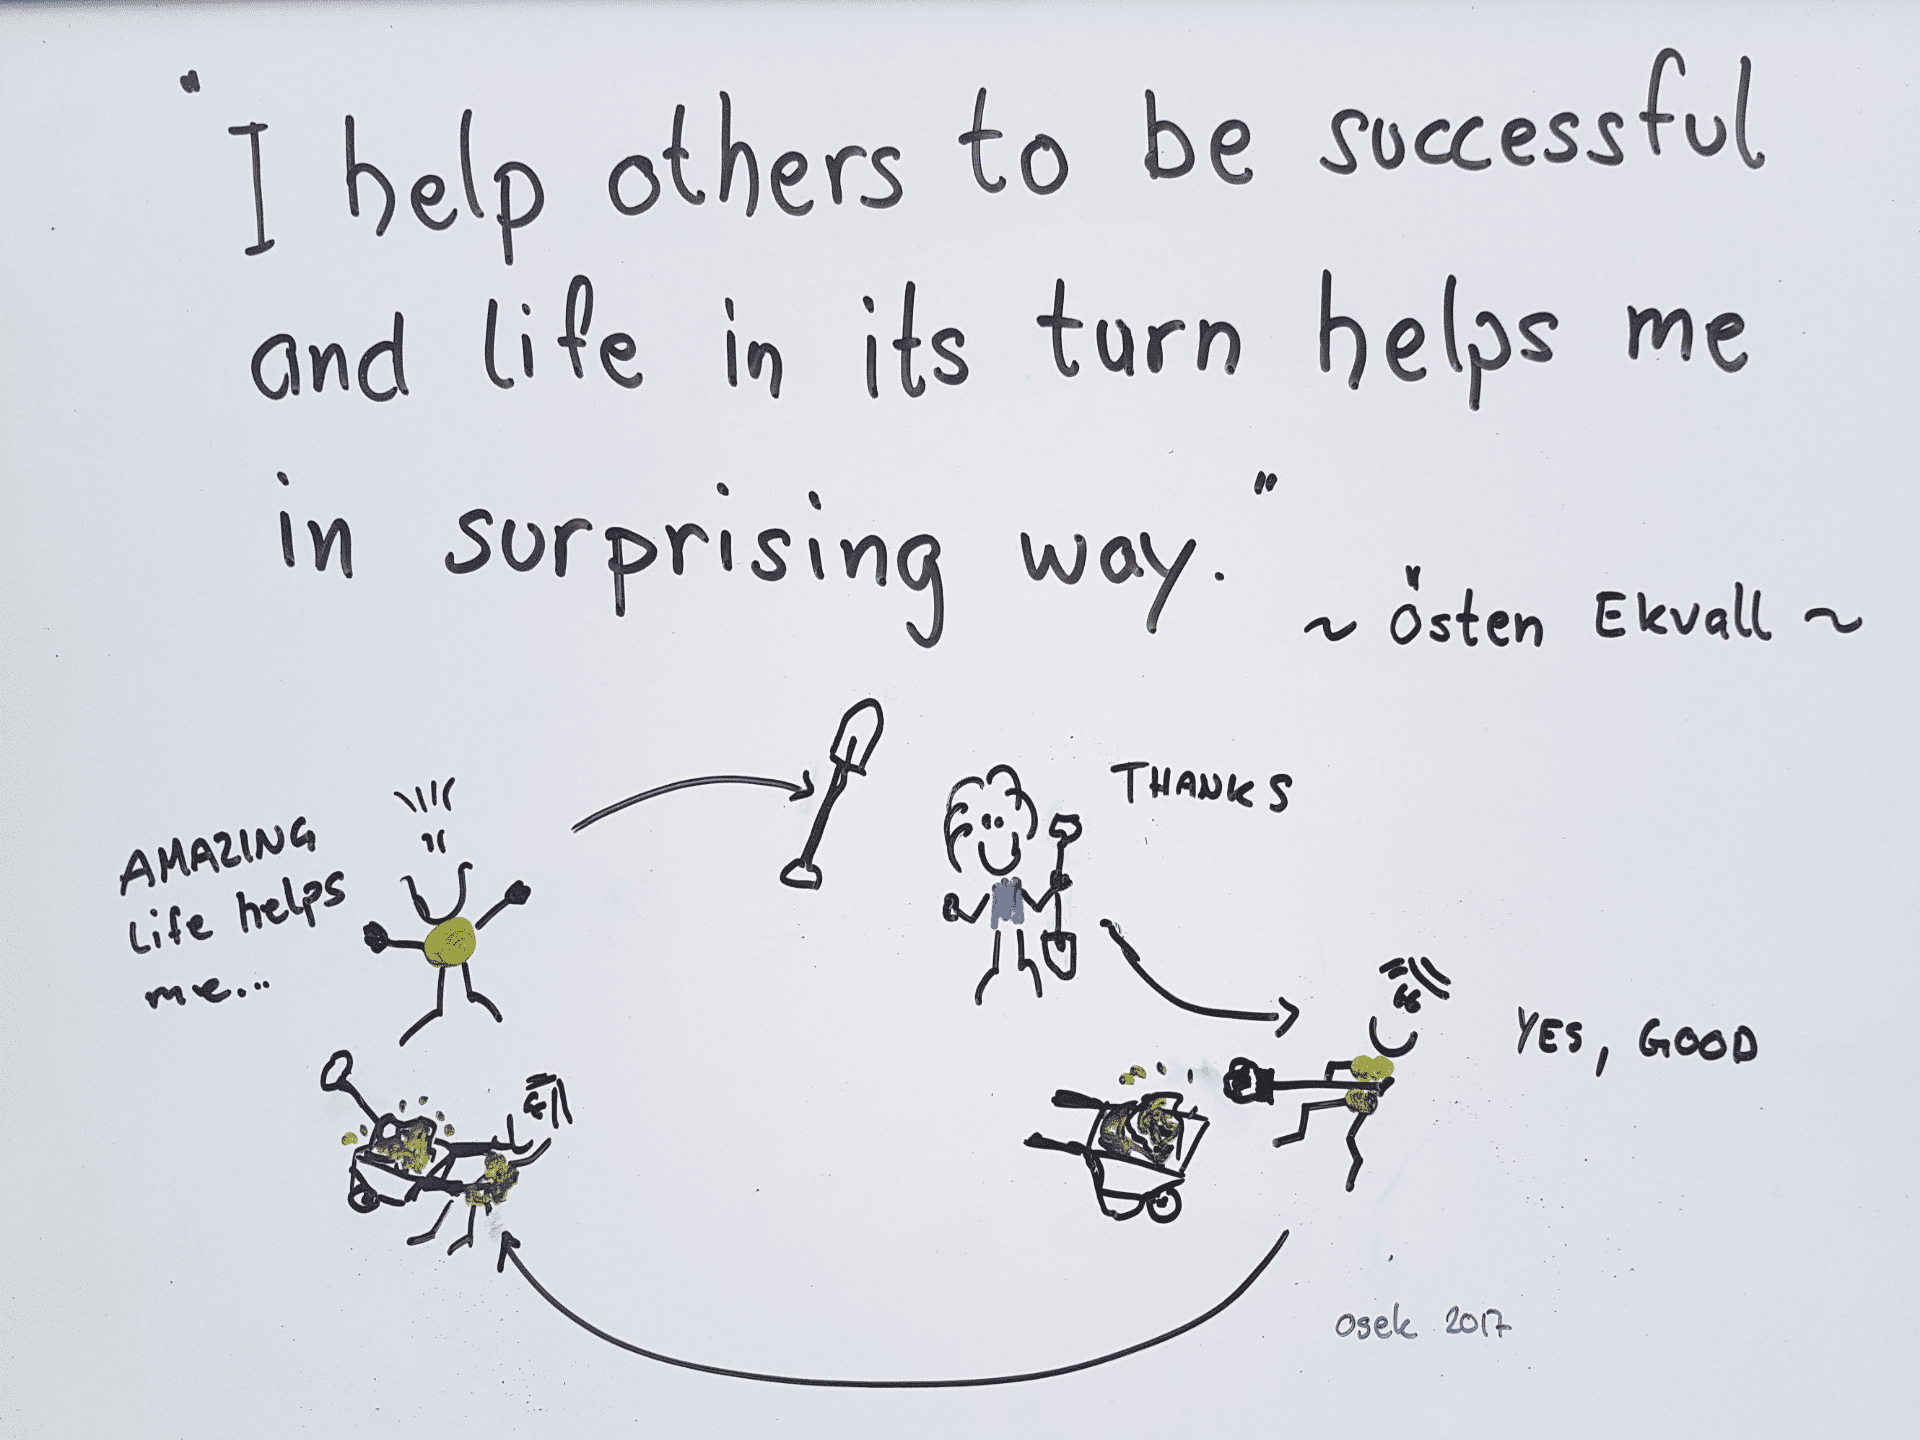 "I help others to be successful
and life in its turn helps me
in surprising way."
~ Östen Ekvall ~
THANKS
AMAZING
Life helps
me...
YES, GOOD
osek 2017